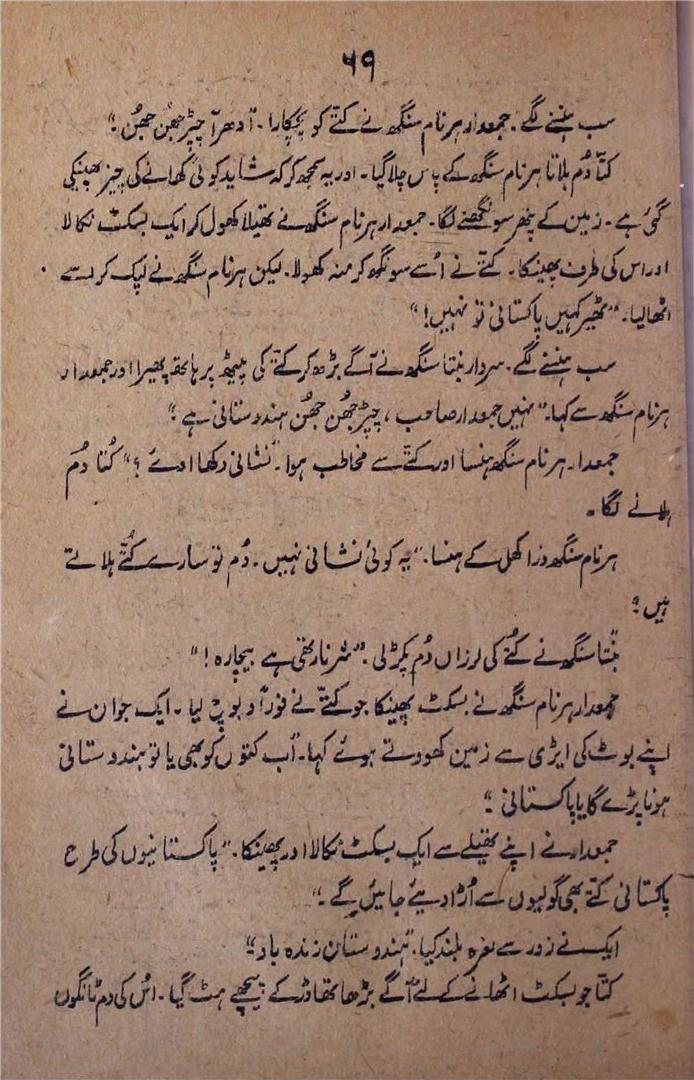 ۶۹
سب ہنسنے لگے۔ جمعدار ہرنام سنگھ نے کتے کو پچکارا۔ "ادھر آ چپڑ جھن جھُن۔"
کتا دُم ہلاتا ہرنام سنگھ کے پاس چلا گیا۔ اور یہ سمجھ کر کہ شاید کوئی کھانے کی چیز پھینکی
گئی ہے۔ زمین کے پتھر سونگھنے لگا۔ جمعدار ہرنام سنگھ نے تھیلا کھول کر ایک بسکٹ نکالا
اور اس کی طرف پھینکا۔ کتے نے اُسے سونگھ کر منہ کھولا۔ لیکن ہرنام سنگھ نے لپک کر اسے
اٹھا لیا۔ "ٹھیر کہیں پاکستانی تو نہیں!"
سب ہنسنے لگے۔ سردار بنتا سنگھ نے آگے بڑھ کر کتے کی پیٹھ پر ہاتھ پھیرا اور جمعدار
ہرنام سنگھ سے کہا۔ "نہیں جمعدار صاحب، چپڑ جھُن جھُن ہندوستانی ہے۔"
جمعدار ہرنام سنگھ ہنسا اور کتے سے مخاطب ہوا۔ "نشانی دکھا اوئے؟" کُتا دُم
ہلانے لگا۔
ہرنام سنگھ ذرا کھل کے ہنسا۔ "یہ کوئی نشانی نہیں۔ دُم تو سارے کُتے ہلاتے
ہیں؟
بنتا سنگھ نے کُتے کی لرزاں دُم پکڑ لی۔ "شرنارتھی ہے بیچارہ!"
جمعدار ہرنام سنگھ نے بسکٹ پھینکا جو کتے نے فوراً دبوچ لیا۔ ایک جوان نے
اپنے بوٹ کی ایڑی سے زمین کھودتے ہوئے کہا۔ "اب کتوں کو بھی یا تو ہندوستانی
ہونا پڑے گا یا پاکستانی۔"
جمعدار نے اپنے تھیلے سے ایک بسکٹ نکالا اور پھینکا۔ "پاکستانیوں کی طرح
پاکستانی کتے بھی گولیوں سے اُڑا دیئے جائیں گے۔"
ایک نے زور سے نعرہ بلند کیا۔ "ہندوستان زندہ باد۔"
کتا جو بسکٹ اٹھانے کے لئے آگے بڑھا تھا ڈر کے پیچھے ہٹ گیا۔ اس کی دم ٹانگوں